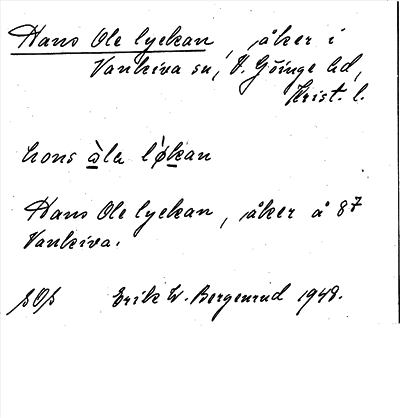 Hans Ole lyckan, åker i
Vankiva sn, V. Göinge hd,
Krist. l.
hons àla løkan
Hans Ole lyckan, åker å 8⁷
Vankiva.
Erik W. Bergenrud 1948.